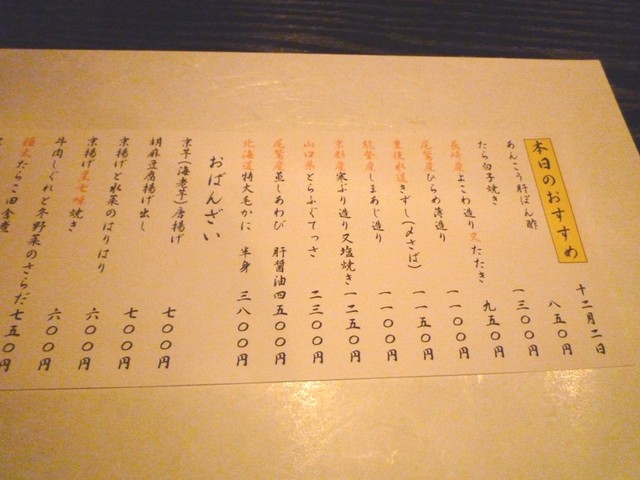 十二月二日
本日のおすすめ
あんこう肝ぽん酢 八五〇円
たら白子焼き 一三〇〇円
長崎産よこわ造り又たたき 九五〇円
尾鷲産ひらめ薄造り 一一〇〇円
豊後水道きずし(〆さば) 一一五〇円
能登産しまあじ造り 一一〇〇円
京都産寒ぶり造り又塩焼き 一二五〇円
山口県とらふぐてっさ 二三〇〇円
尾鷲産蒸しあわび 肝醤油 四五〇〇円
北海道特大毛かに 半身 三八〇〇円
おばんざい
京芋(海老芋)唐揚げ 七〇〇円
胡麻豆腐揚げ出し 七〇〇円
京揚げと水菜のはりはり 六〇〇円
京揚げ黒七味焼き 六〇〇円
牛肉しぐれと冬野菜のさらだ 七五〇円
極太たらこ田舎煮